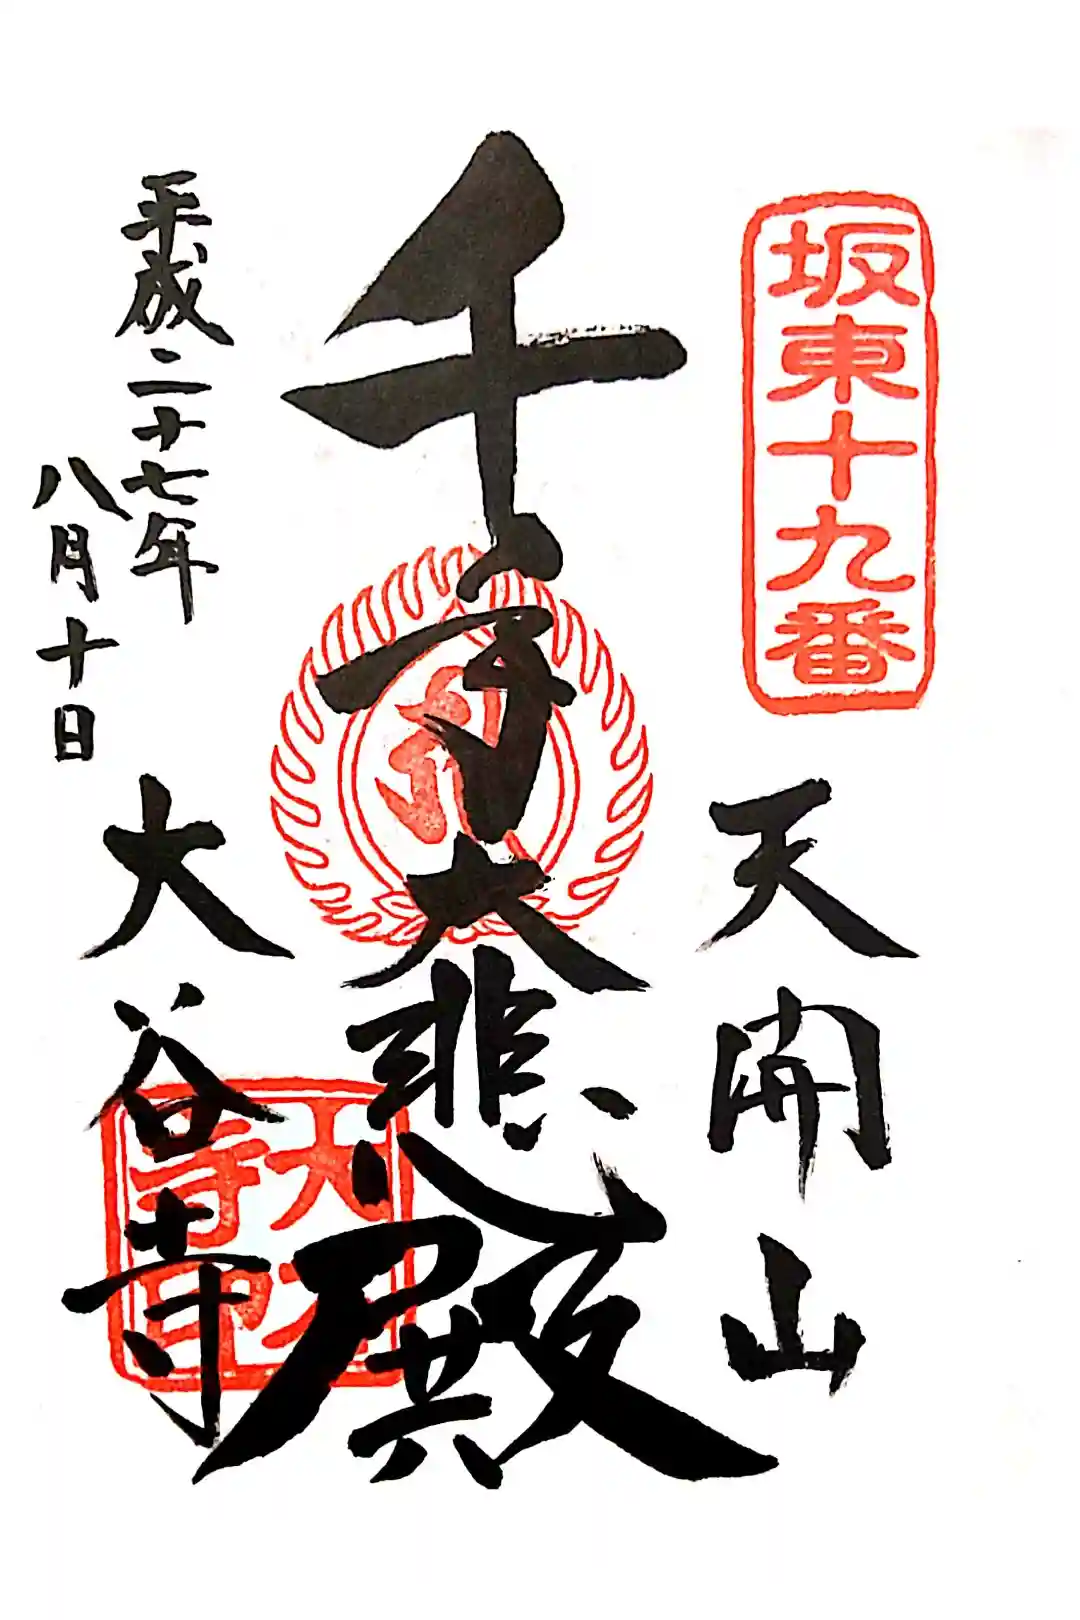 坂東十九番
天開山
千手大悲殿
大谷寺
平成二十七年
八月十日